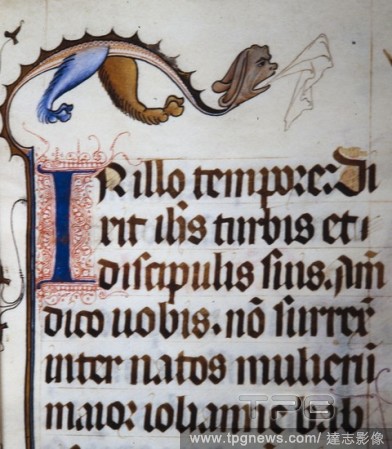 IN illo tempore: Di
xit ih̄s turbis et
discipulis suis. Am̄
dico uobis. nō surrex
inter natos mulierū
maior iohanne bab
TPG
www.tpgnews.com/ 達志影像